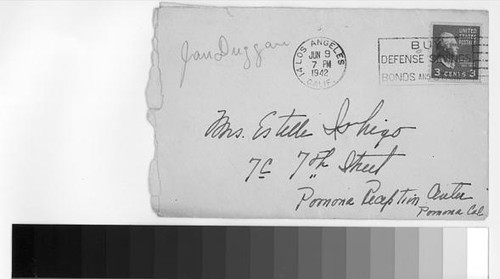 Jan Duggan
LOS ANGELES
14
JUN 9
7 PM
1942
CALIF.
BU
DEFENSE SAVINGS
BONDS
UNITED
STATES
POSTAGE
3 CENTS 3
Mrs. Estelle Ishigo
7C 7th Street
Pomona Reception Center
Pomona Cal.